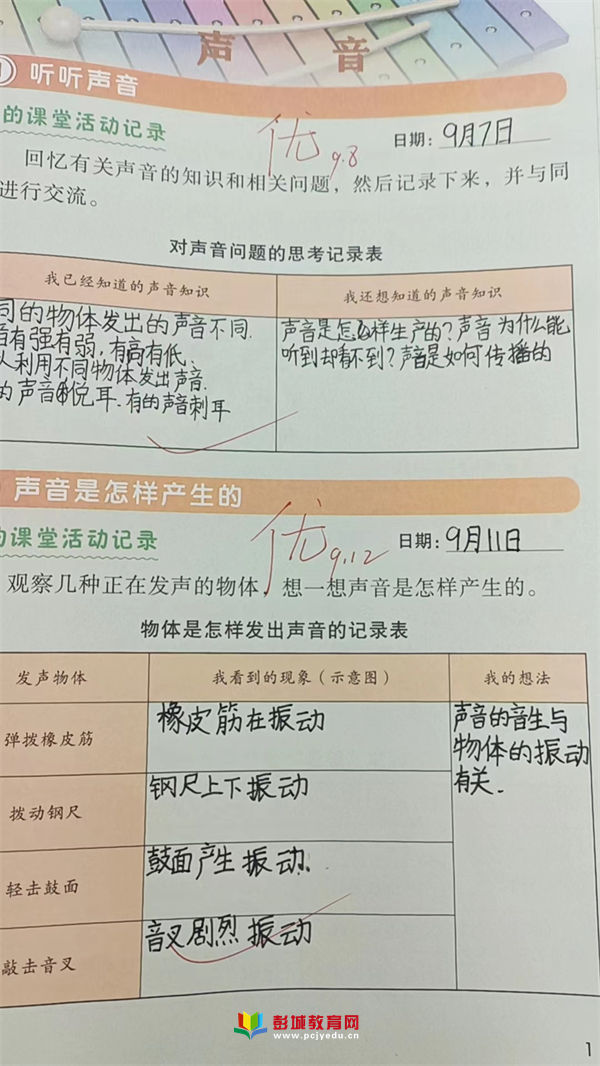 声 音
听听声音
的课堂活动记录
优 9.8
日期：9月7日
回忆有关声音的知识和相关问题，然后记录下来，并与同
进行交流。
对声音问题的思考记录表
我已经知道的声音知识
我还想知道的声音知识
同的物体发出的声音不同.
音有强有弱，有高有低、
人利用不同物体发出声音.
的声音悦耳.有的声音刺耳
声音是怎么样生产的？声音为什么能
听到却看不到？声音是如何传播的
声音是怎样产生的
的课堂活动记录
优 9.12
日期：9月11日
观察几种正在发声的物体，想一想声音是怎样产生的。
物体是怎样发出声音的记录表
发声物体
我看到的现象（示意图）
我的想法
弹拨橡皮筋
橡皮筋在振动
声音的音生与
物体的振动
有关.
拨动钢尺
钢尺上下振动
轻击鼓面
鼓面产生振动.
敲击音叉
音叉剧烈振动
彭城教育网
www.pcjyedu.cn
1